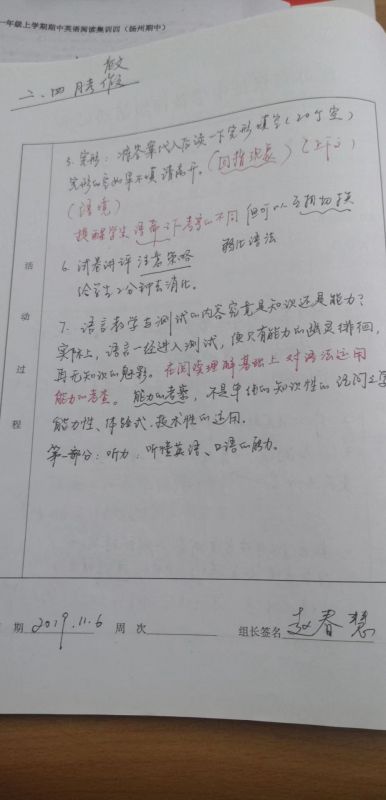 一年级上学期期中英语阅读集训四（扬州期中）
二、四月考作文
5. 完形：将答案代入后读一下完形填空（20个空）
完形的空如果不填 请离开。（回指现象）（上下文）
（语境）
提醒学生 语篇之下考察的不同 但可以互相切换
6. 试卷讲评 注意策略 弱化语法
给学生2分钟去消化。
7. 语言教学与测试的内容究竟是知识还是能力？
实际上，语言一经进入测试，便只有能力的幽灵徘徊，
再无知识的魅影。在阅读理解基础上对语法运用
能力的考查。能力的考察，不是单纯的知识性的
能力性、体验式、技术性的运用。
第一部分：听力：听懂英语、口语的能力。
活
动
过
程
期 2019.11.6 周次 组长签名 赵春慧